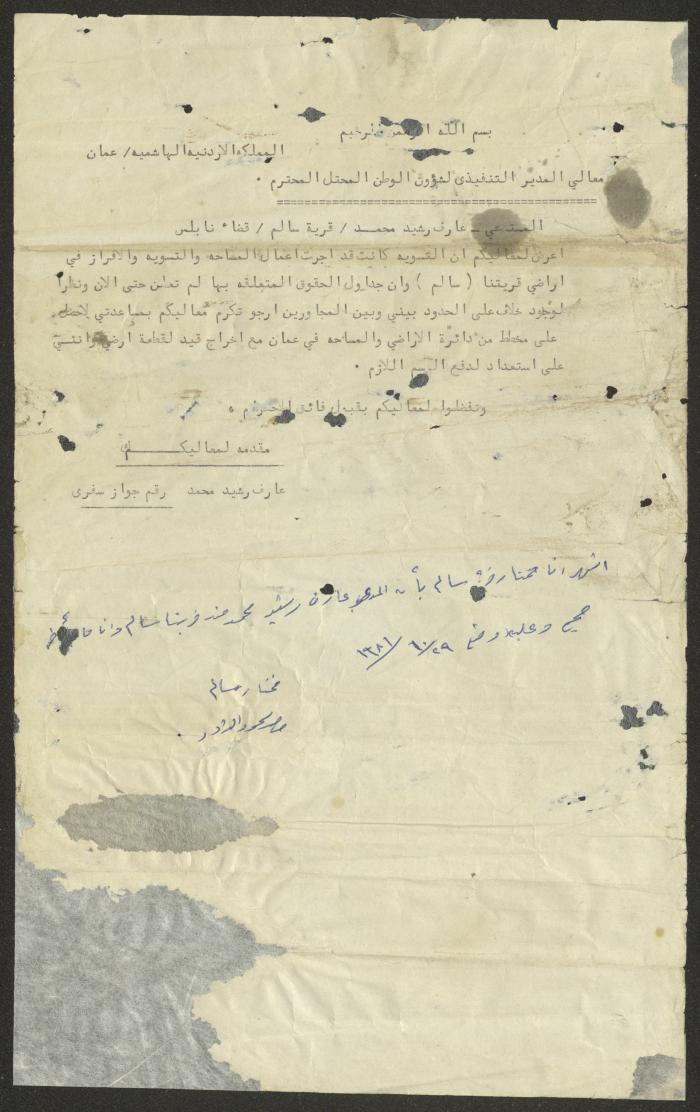 بسم الله الرحمن الرحيم
المملكه الاردنيه الهاشميه/ عمان
معالي المدير التنفيذى لشؤون الوطن المحتل المحترم .
المستدعي - عارف رشيد محمد / قرية سالم / قضاء نابلس
اعرض لمعاليكم ان التسويه كانت قد اجرت اعمال المساحه والتسويه والافراز في
اراضي قريتنا ( سالم ) وان جداول الحقوق المتعلقه بها لم تعلن حتى الان ونظرا
لوجود خلاف على الحدود بيني وبين المجاورين ارجو تكرم معاليكم بمساعدتي لاحصل
على مخطط من دائرة الاراضي والمساحه في عمان مع اخراج قيد لقطعة ارضي وانني
على استعداد لدفع الرسم اللازم .
وتفضلوا لمعاليكم بقبول فائق الاحترام .
مقدمه لمعاليكم
عارف رشيد محمد رقم جواز سفرى
اشهد انا مختار قرية سالم بأن المدعو عارف رشيد محمد من قريتنا سالم وانا
صحيح وعليه اوقع ٢٩/١٠/١٩٨١
مختار سالم